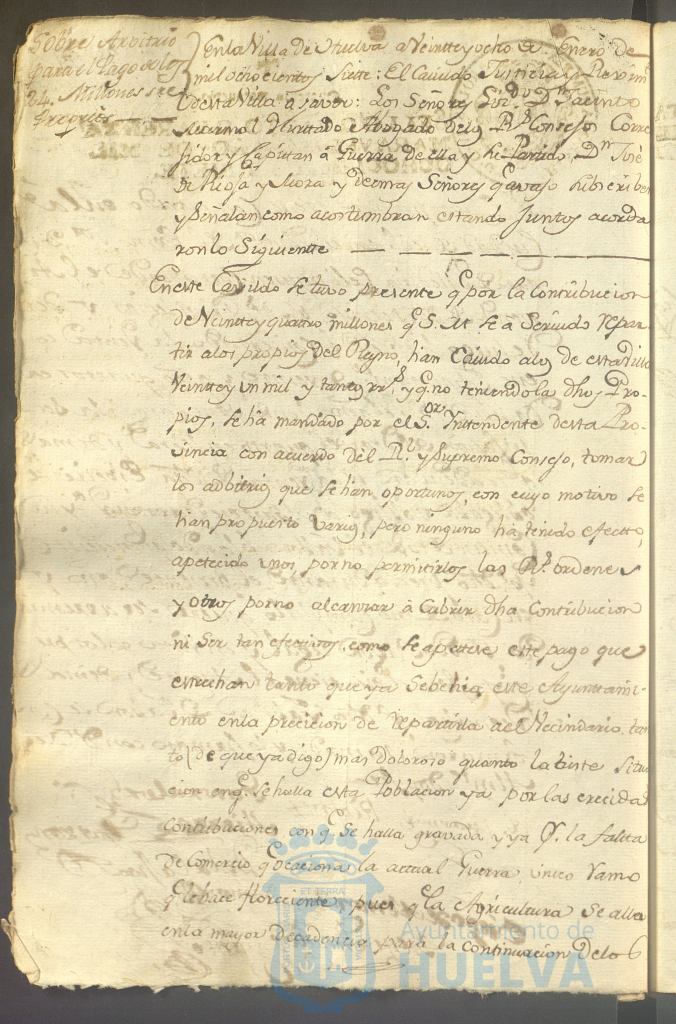 Sobre Arbitrio
para el Pago de los
24. Millones
En la Villa de Huelva a Veintte y ocho de Enero de
mil ochocientos Siete: El Cavildo Justicia y Reximto
de esta Villa a saver: Los Señores Lizdo Dn Jacinto
Abogado de los Rs Consejos Corre
gidor y Capittan à Guerra de ella y su Partido Dn José
de Rioja y Mora y demas Señores q avajo subscriben
y Señalan como acostumbran estando Juntos acorda
ron lo Siguientte
En este Cavildo se tuvo presente q por la Contribucion
de Veintte y quatro millones q S. M. se a Servido repar-
tir a los propios del Reyno, han Cavido a los de esta Villa
Veintte y un mil y tantos rrs y q no teniendola dhos Pro-
pios, se ha mandado por el Sor Yntendente desta Pro-
vincia con acuerdo del Rl y Supremo Consejo, tomar
los adbitrios que se han oportunos, con cuyo motivo se
han propuesto varios, pero ninguno ha tenido efectto,
apetecido unos, por no permitirlos las Rs ordenes
y otros por no alcanzar à Cubrir dha Contribucion
ni Ser tan efectivos como se apetese este pago que
estrechan tanto que ya Sebehia este Ayunttami-
ento en la precicion de repartirla al Vecindario, tan
to (de que ya digo) mas doloroso quanto la triste Situa
cion en q se halla esta Poblacion ya por las crecidas
Contribuciones con q se halla gravada y ya Pr la faltta
de Comercio q ocaciona la actual Guerra unico ramo
q la hace floreciente, pues q la Agricultura Se alla
en la mayor decadencia, y para la continuacion de los
Ayuntamiento de
HUELVA